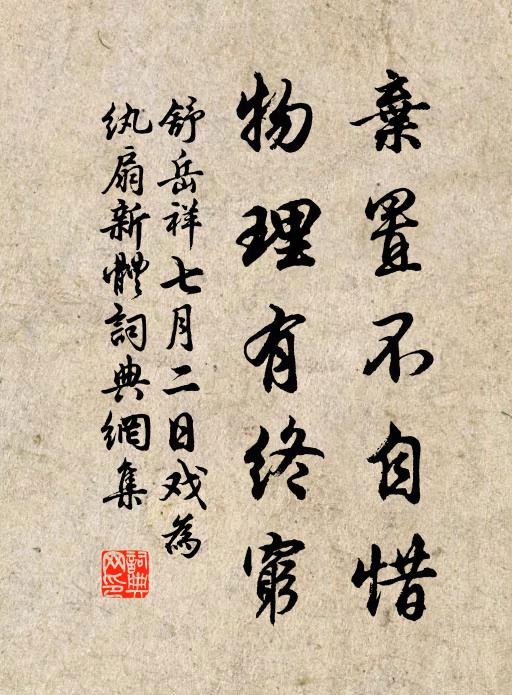 棄置不自惜
物理有終窮
舒岳祥七月二日戏為
纨扇新體詞典網集
詞典
网印